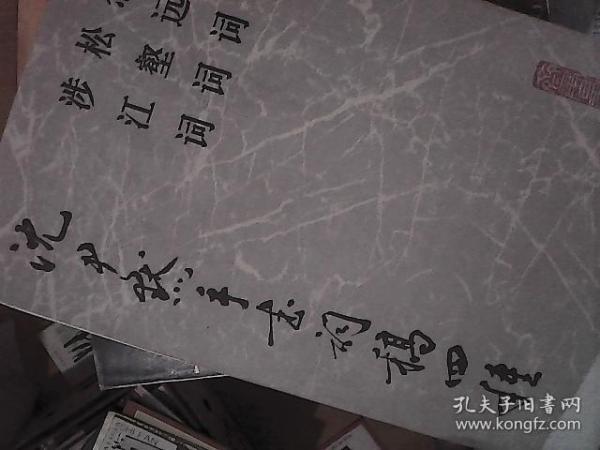 远词
松壑词
涉江词
沈尹默手书词稿四种
孔夫子旧书网
www.kongfz.com